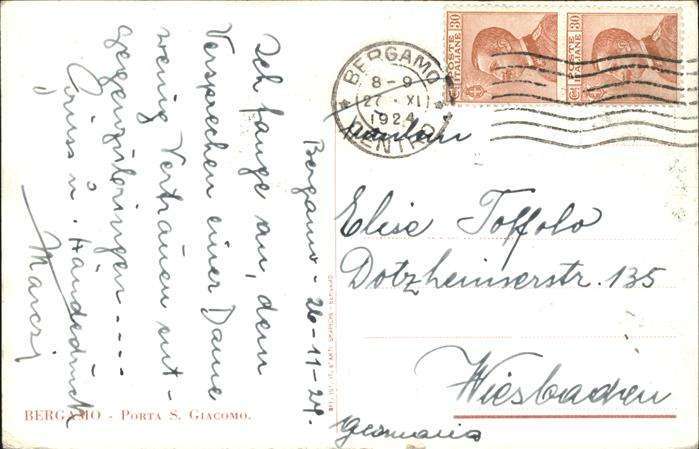 POSTE ITALIANE 30
POSTE ITALIANE 30
BERGAMO
8-9
27 · XI
1924
CENTRO
Bergamo - 26-11-24.
Ich fange an, dem
Versprechen einer Dame
wenig Vertrauen ent-
gegenzubringen ....
Gruss u. Händedruck
Elise Toffolo
Dotzheimerstr. 135
Wiesbaden
Germania
BERGAMO - PORTA S. GIACOMO.